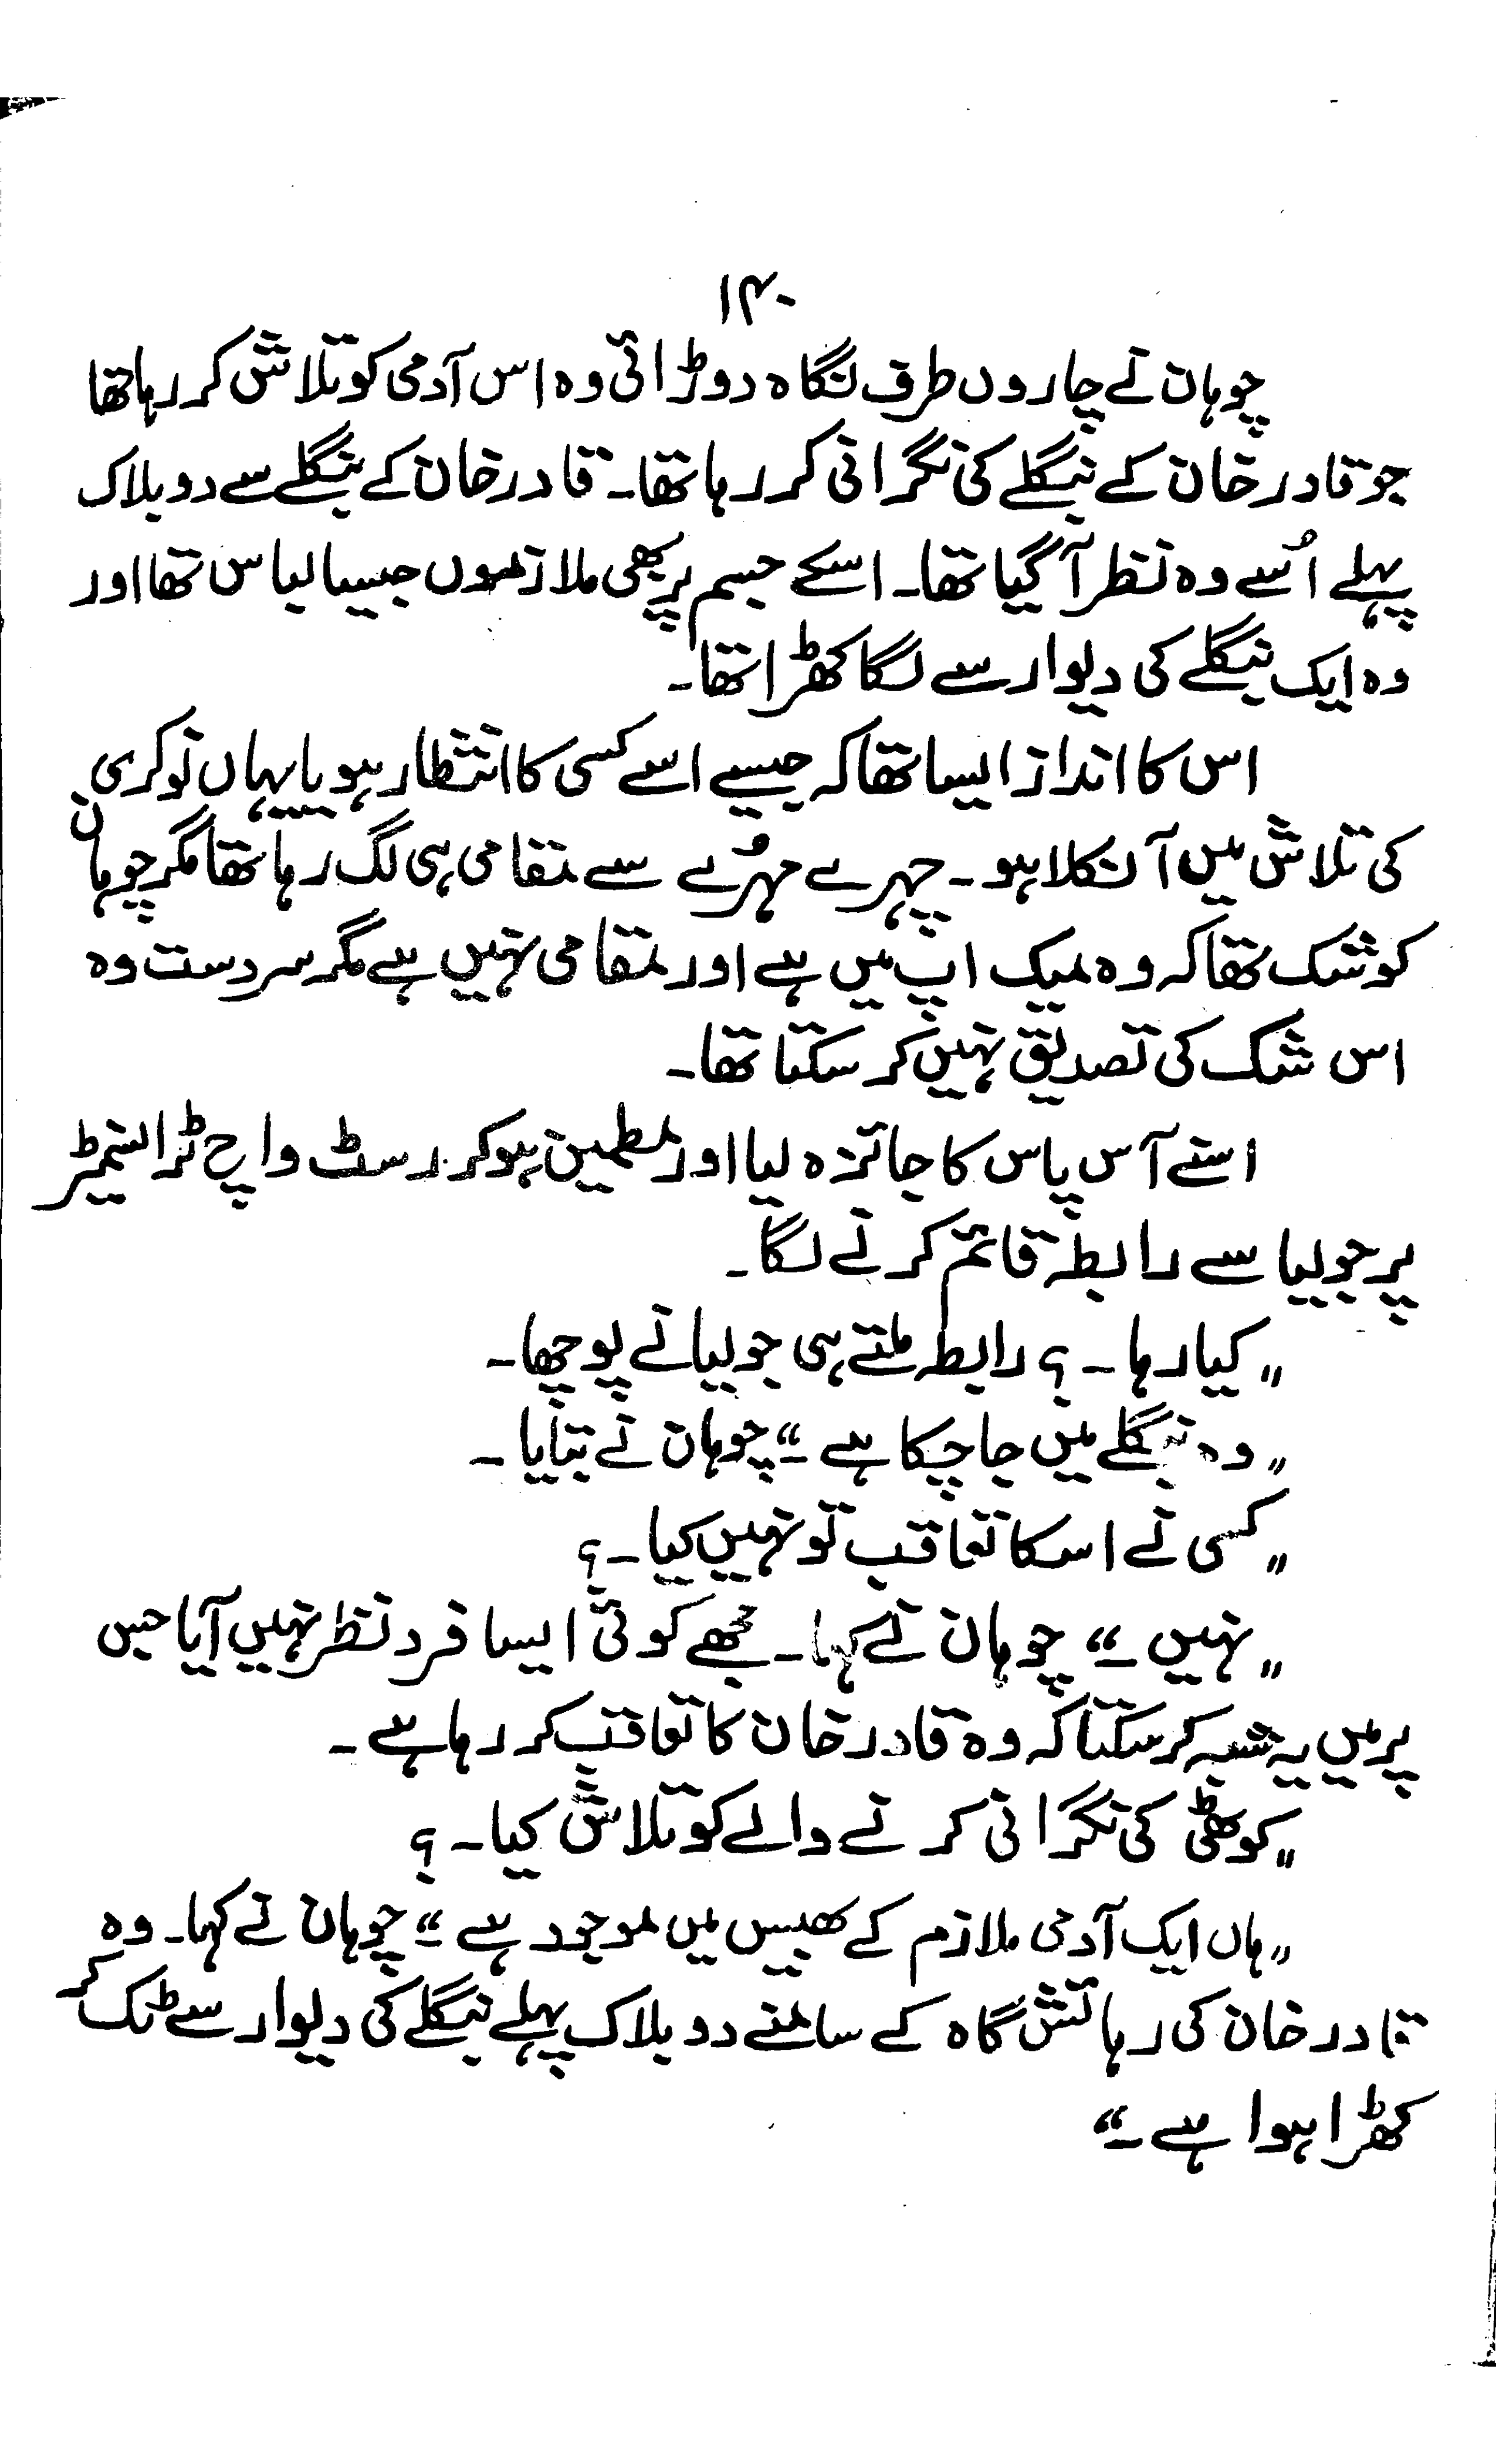 ۱۴۰
چوہان نے چاروں طرف نگاہ دوڑائی وہ اس آدمی کو تلاش کر رہا تھا
جو قادر خان کے بنگلے کی نگرانی کر رہا تھا۔ قادر خان کے بنگلے سے دو بلاک
پہلے اُسے وہ نظر آ گیا تھا۔ اسکے جسم پر بھی ملازموں جیسا لباس تھا اور
وہ ایک بنگلے کی دیوار سے لگا کھڑا تھا۔
اس کا انداز ایسا تھا کہ جیسے اسے کسی کا انتظار ہو یا یہاں نوکری
کی تلاش میں آ نکلا ہو۔ چہرے مہُرے سے مقامی ہی لگ رہا تھا مگر چوہان
کو شک تھا کہ وہ میک اپ میں ہے اور مقامی نہیں ہے مگر سردست وہ
اس شک کی تصدیق نہیں کر سکتا تھا۔
اسنے آس پاس کا جائزہ لیا اور مطمین ہو کر رسٹ واچ ٹرانسمیٹر
پر جولیا سے رابطہ قائم کرنے لگا۔
„کیا رہا۔؟ رابطہ ملتے ہی جولیا نے پوچھا۔
„وہ بنگلے میں جا چکا ہے۔“ چوہان نے بتایا۔
„کسی نے اسکا تعاقب تو نہیں کیا۔؟
„نہیں۔“ چوہان نے کہا۔ مجھے کوئی ایسا فرد نظر نہیں آیا جس
پر میں یہ شبہ کر سکتا کہ وہ قادر خان کا تعاقب کر رہا ہے۔
„کوٹھی کی نگرانی کرنے والے کو تلاش کیا۔؟
„ہاں ایک آدمی ملازم کے بھیس میں موجود ہے۔“ چوہان نے کہا۔ وہ
قادر خان کی رہائش گاہ کے سامنے دو بلاک پہلے بنگلے کی دیوار سے ٹک کر
کھڑا ہوا ہے۔“